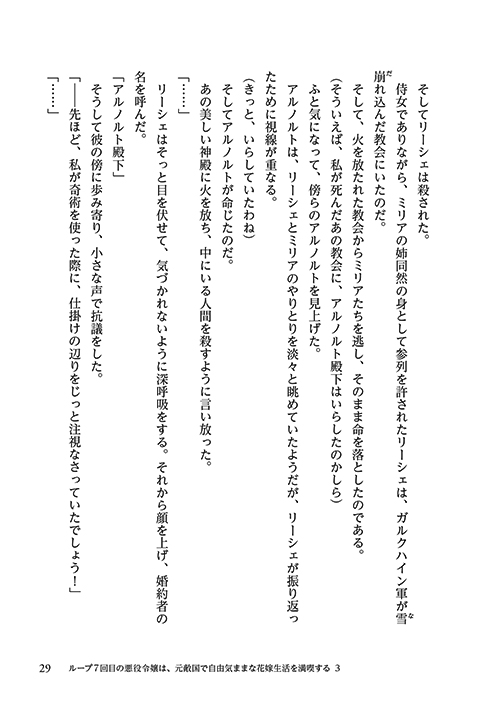 そしてリーシェは殺された。
侍女でありながら、ミリアの姉同然の身として参列を許されたリーシェは、ガルクハイン軍が雪
崩れ込んだ教会にいたのだ。
そして、火を放たれた教会からミリアたちを逃し、そのまま命を落としたのである。
(そういえば、私が死んだあの教会に、アルノルト殿下はいらしたのかしら)
ふと気になって、傍らのアルノルトを見上げた。
アルノルトは、リーシェとミリアのやりとりを淡々と眺めていたようだが、リーシェが振り返っ
たために視線が重なる。
(きっと、いらしていたわね)
そしてアルノルトが命じたのだ。
あの美しい神殿に火を放ち、中にいる人間を殺すように言い放った。
「……」
リーシェはそっと目を伏せて、気づかれないように深呼吸をする。それから顔を上げ、婚約者の
名を呼んだ。
「アルノルト殿下」
そうして彼の傍に歩み寄り、小さな声で抗議をした。
「――先ほど、私が奇術を使った際に、仕掛けの辺りをじっと注視なさっていたでしょう!」
「……」
29 ループ7回目の悪役令嬢は、元敵国で自由気ままな花嫁生活を満喫する 3